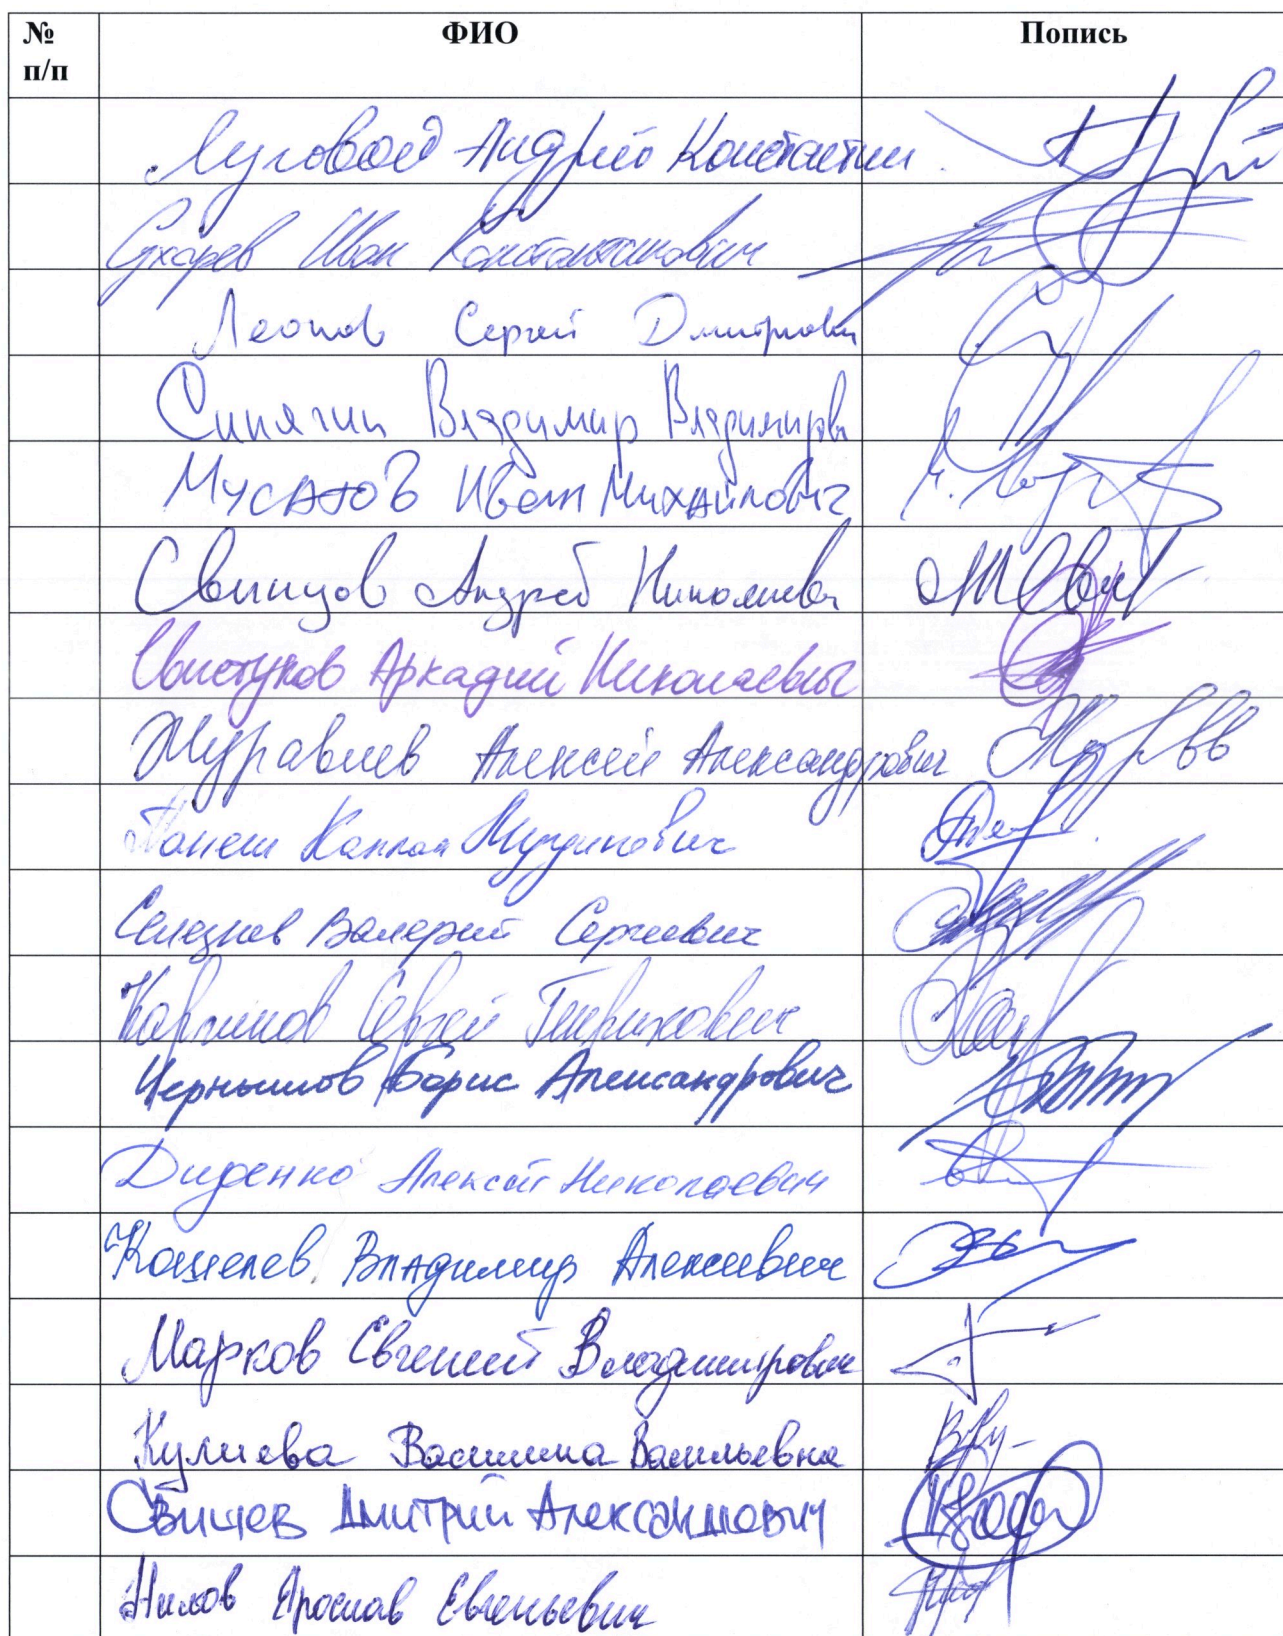 № п/п ФИО Попись
Луговой Андрей Константин
Сухарев Иван Константинович
Леонов Сергей Дмитриевич
Синягин Владимир Владимиров
Мусатов Иван Михайлович
Свинцов Андрей Николаевич
Свистунов Аркадий Николаевич
Журавлев Алексей Александрович
Панеш Каплан Мугдинович
Селезнев Валерий Сергеевич
Каргинов Сергей Генрихович
Чернышов Борис Александрович
Диденко Алексей Николаевич
Кошелев Владимир Алексеевич
Марков Евгений Владимирович
Кулиева Василина Васильевна
Свищев Дмитрий Александрович
Нилов Ярослав Евгеньевич